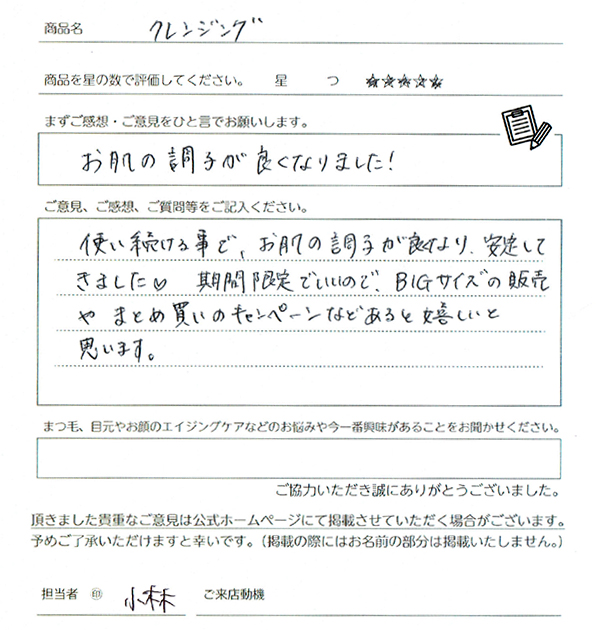 商品名 クレンジング
商品を星の数で評価してください。 星 つ ☆☆☆☆☆
まずご感想・ご意見をひと言でお願いします。
お肌の調子が良くなりました!
ご意見、ご感想、ご質問等をご記入ください。
使い続ける事で、お肌の調子が良くなり、安定して
きました♡ 期間限定でいいので、BIGサイズの販売
や まとめ買いのキャンペーンなどあると嬉しいと
思います。
まつ毛、目元やお顔のエイジングケアなどのお悩みや今一番興味があることをお聞かせください。
ご協力いただき誠にありがとうございました。
頂きました貴重なご意見は公式ホームページにて掲載させていただく場合がございます。
予めご了承いただけますと幸いです。(掲載の際にはお名前の部分は掲載いたしません。)
担当者 ㊞ 小林 ご来店動機